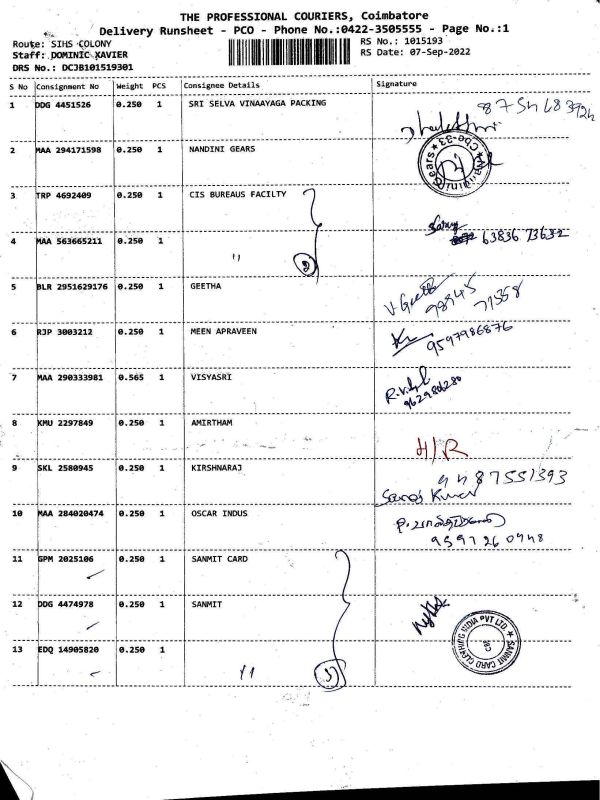 THE PROFESSIONAL COURIERS, Coimbatore
Delivery Runsheet - PCO - Phone No.:0422-3505555 - Page No.:1
Route: SIHS COLONY
Staff: DOMINIC XAVIER
DRS No.: DCJB101519301
RS No.: 1015193
RS Date: 07-Sep-2022
S No Consignment No Weight PCS Consignee Details Signature
1 DDG 4451526 0.250 1 SRI SELVA VINAAYAGA PACKING
2 MAA 294171598 0.250 1 NANDINI GEARS
3 TRP 4692409 0.250 1 CIS BUREAUS FACILTY
4 MAA 563665211 0.250 1 " 2 63836 73632
5 BLR 2951629176 0.250 1 GEETHA V Geetha 98945 71358
6 RJP 3003212 0.250 1 MEEN APRAVEEN 9597986876
7 MAA 290333981 0.565 1 VISYASRI
8 KMU 2297849 0.250 1 AMIRTHAM H/R
9 SKL 2580945 0.250 1 KIRSHNARAJ 9487551393
10 MAA 284020474 0.250 1 OSCAR INDUS 9597260948
11 GPM 2025106 0.250 1 SANMIT CARD
12 DDG 4474978 0.250 1 SANMIT
SANMIT CARD CLOTHING INDIA PVT LTD
13 EDQ 14905820 0.250 1 "